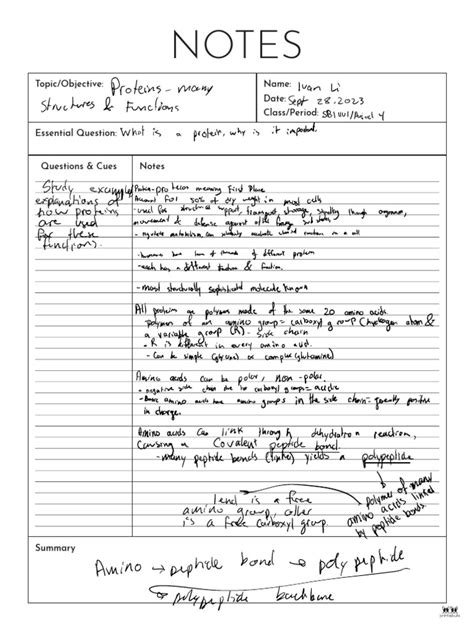 NOTES
Topic/Objective: Proteins - many
Structures & Functions
Name: Ivan Li
Date: Sept 28, 2023
Class/Period: SBI4U1/
Essential Question: What is a protein, why is it important.
Questions & Cues
Notes
Study examples/
explanations of
how proteins
are used
for these
functions.
meaning First Place
Account For 50% of dry weight in most cells
-used for structural support, transport, storage, signalling through organism,
movement & defense against
-humans have of different protein
-each has a different structure & function.
-most structurally sophisticated molecule known
All proteins are polymers made of the same 20 amino acids.
-polymer of an amino group = carboxyl group (hydrogen atom &
a variable group (R) - side chain
-R is different in every amino acid.
-Can be simple (glycine) or complex (glutamine)
Amino acids can be polar, non-polar.
- negative side chain due to carboxyl groups = acidic
-Basic amino acids have amino groups in the side chain = generally positive
in charge.
Amino acids can link through dehydration reaction,
Causing a Covalent peptide bond
-many peptide bonds (links) yields a polypeptide
polymer of many
amino acids linked
by peptide bonds.
1 end is a free
amino group, other
is a free carboxyl group.
Summary
Amino → peptide bond → polypeptide
polypeptide backbone